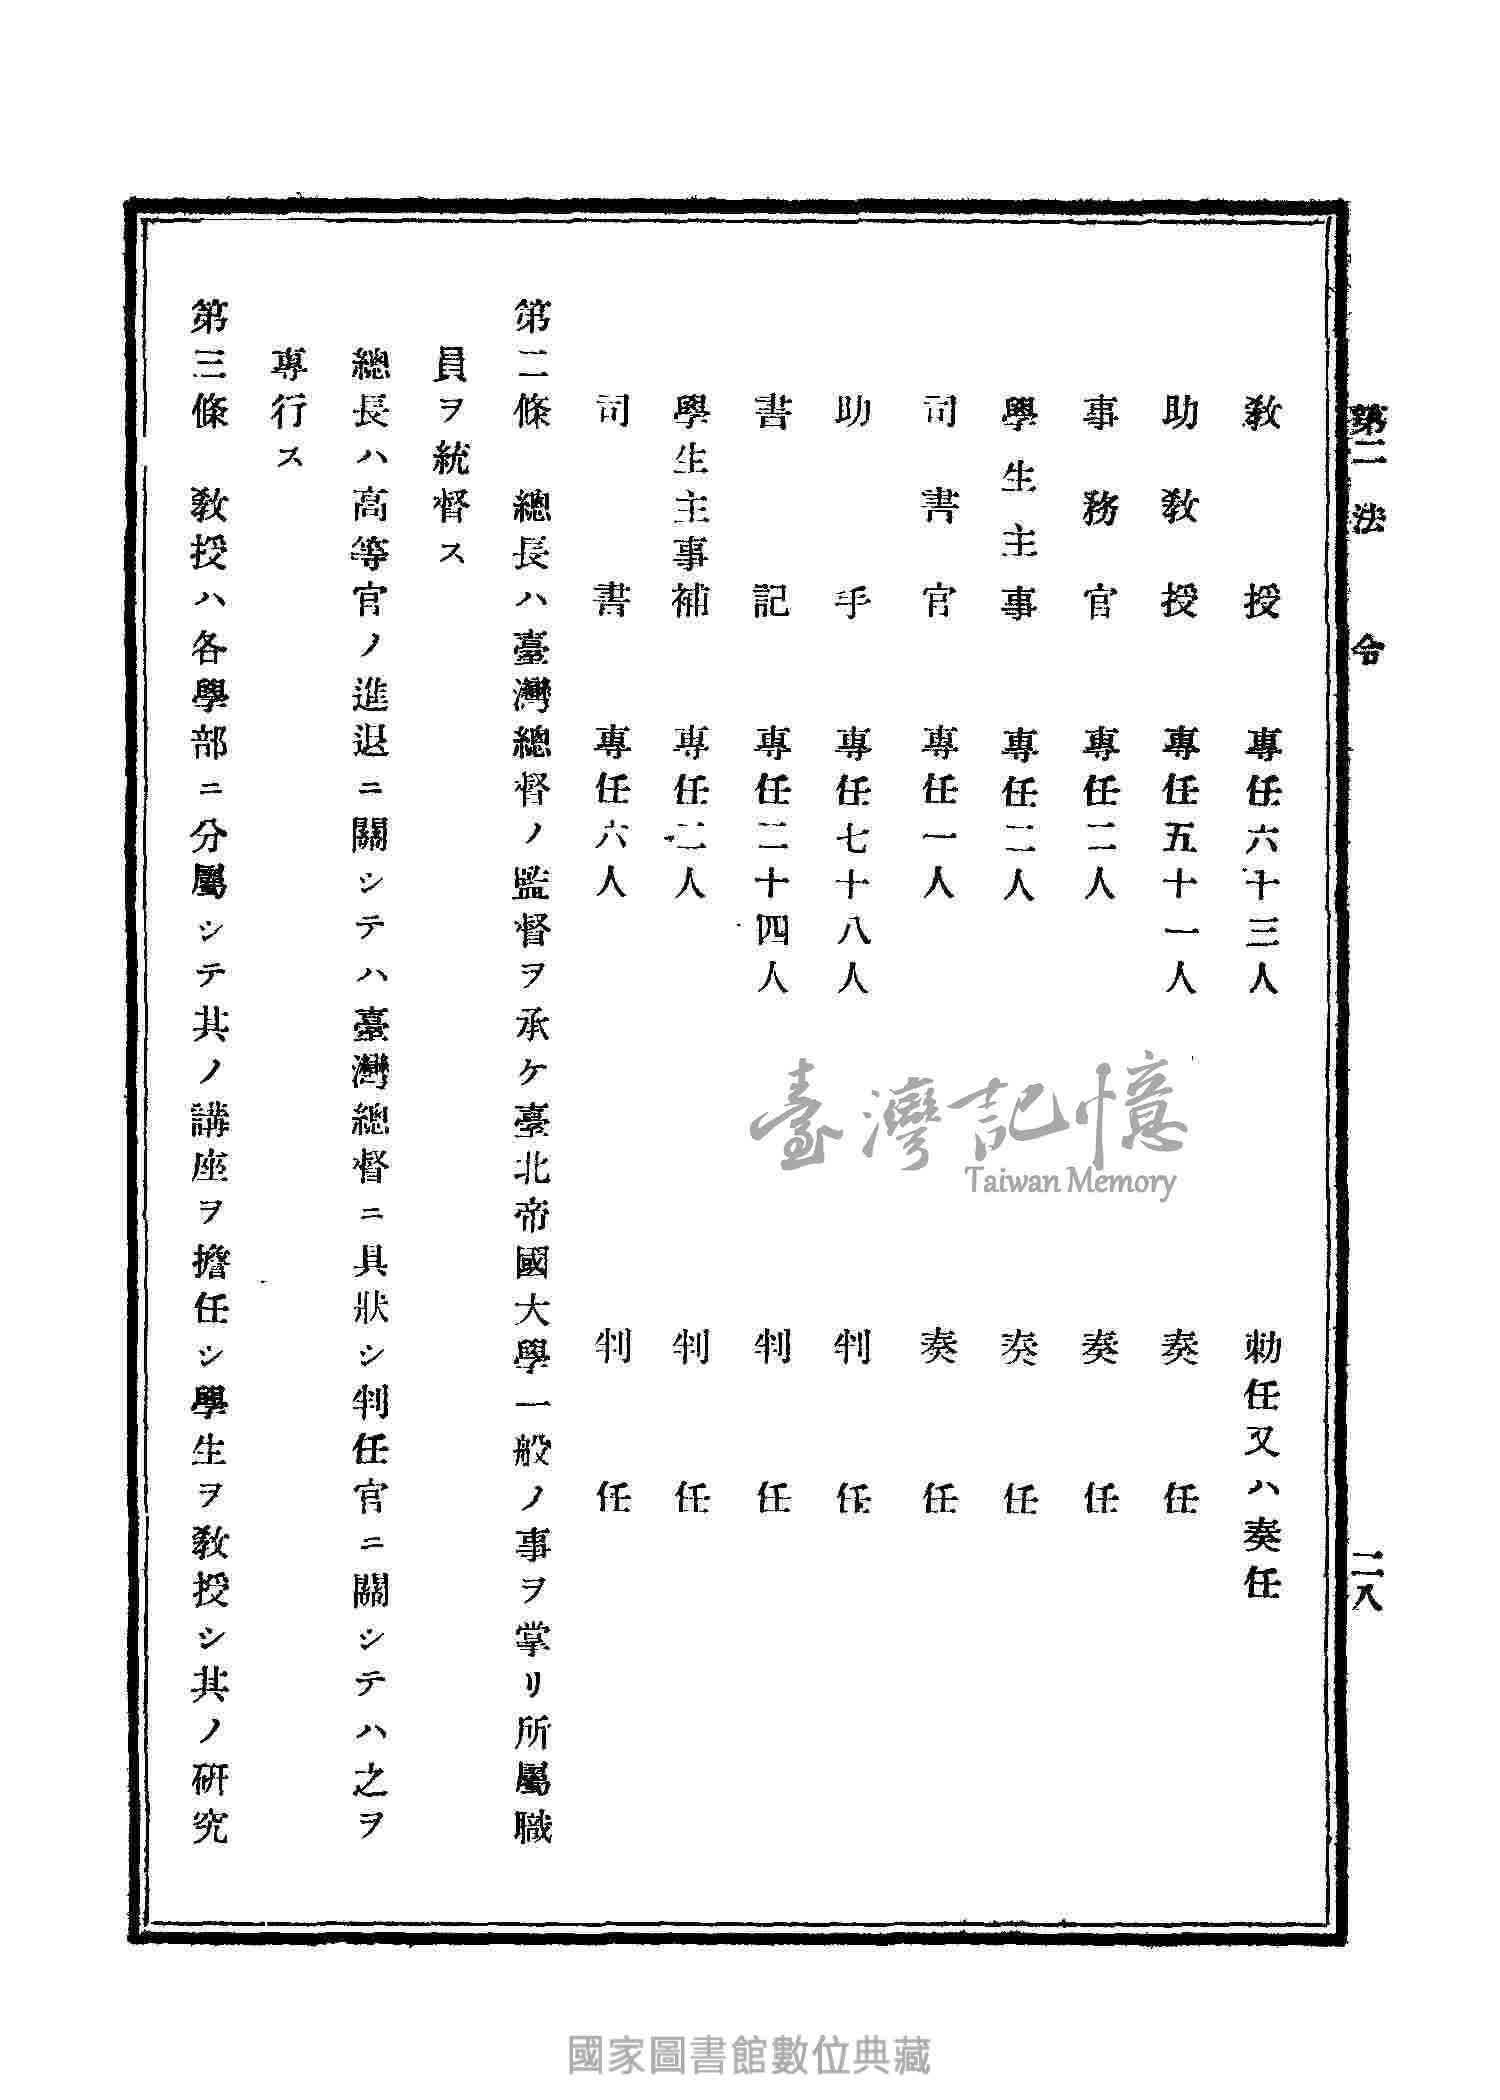 第二 法令 二八
敎授 專任六十三人 勅任又ハ奏任
助敎授 專任五十一人 奏任
事務官 專任二人 奏任
學生主事 專任二人 奏任
司書官 專任一人 奏任
助手 專任七十八人 判任
書記 專任二十四人 判任
學生主事補 專任二人 判任
司書 專任六人 判任
第二條 總長ハ臺灣總督ノ監督ヲ承ケ臺北帝國大學一般ノ事ヲ掌リ所屬職
員ヲ統督ス
總長ハ高等官ノ進退ニ關シテハ臺灣總督ニ具狀シ判任官ニ關シテハ之ヲ
專行ス
第三條 敎授ハ各學部ニ分屬シテ其ノ講座ヲ擔任シ學生ヲ敎授シ其ノ硏究
臺灣記憶
Taiwan Memory
國家圖書館數位典藏